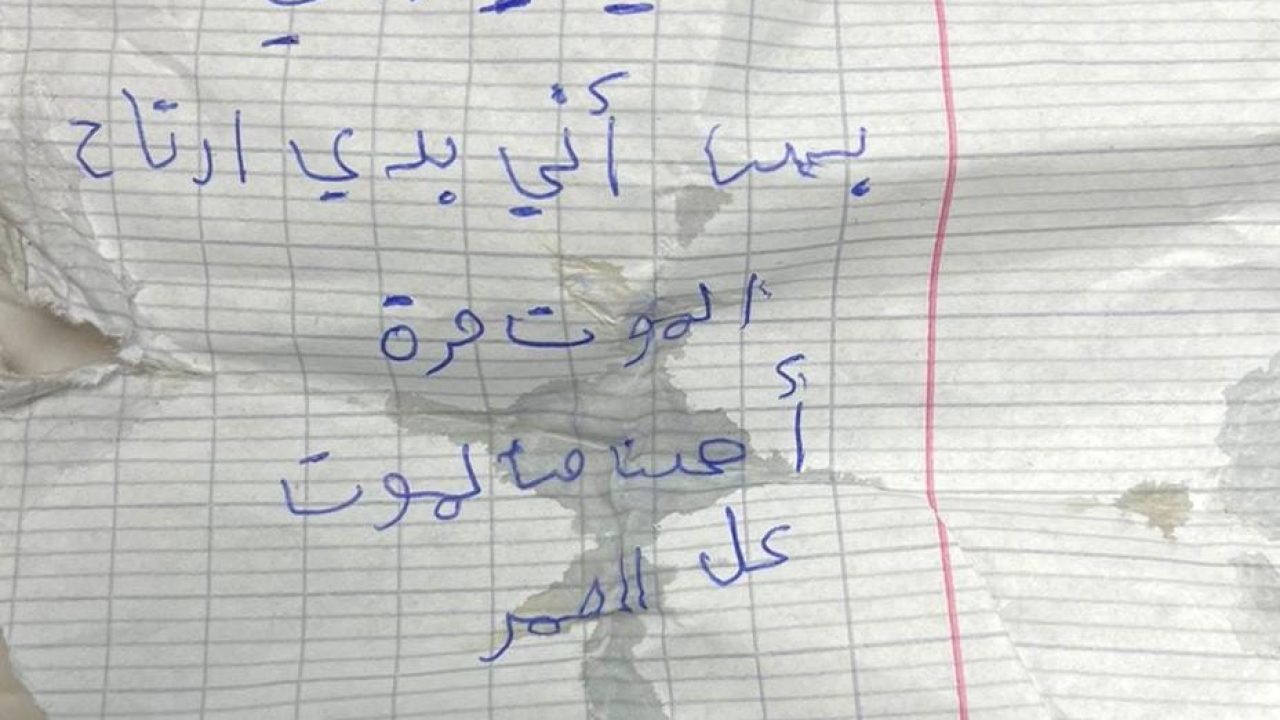 بس أني بدي ارتاح
الموت مرة
أحسن من الموت
كل العمر